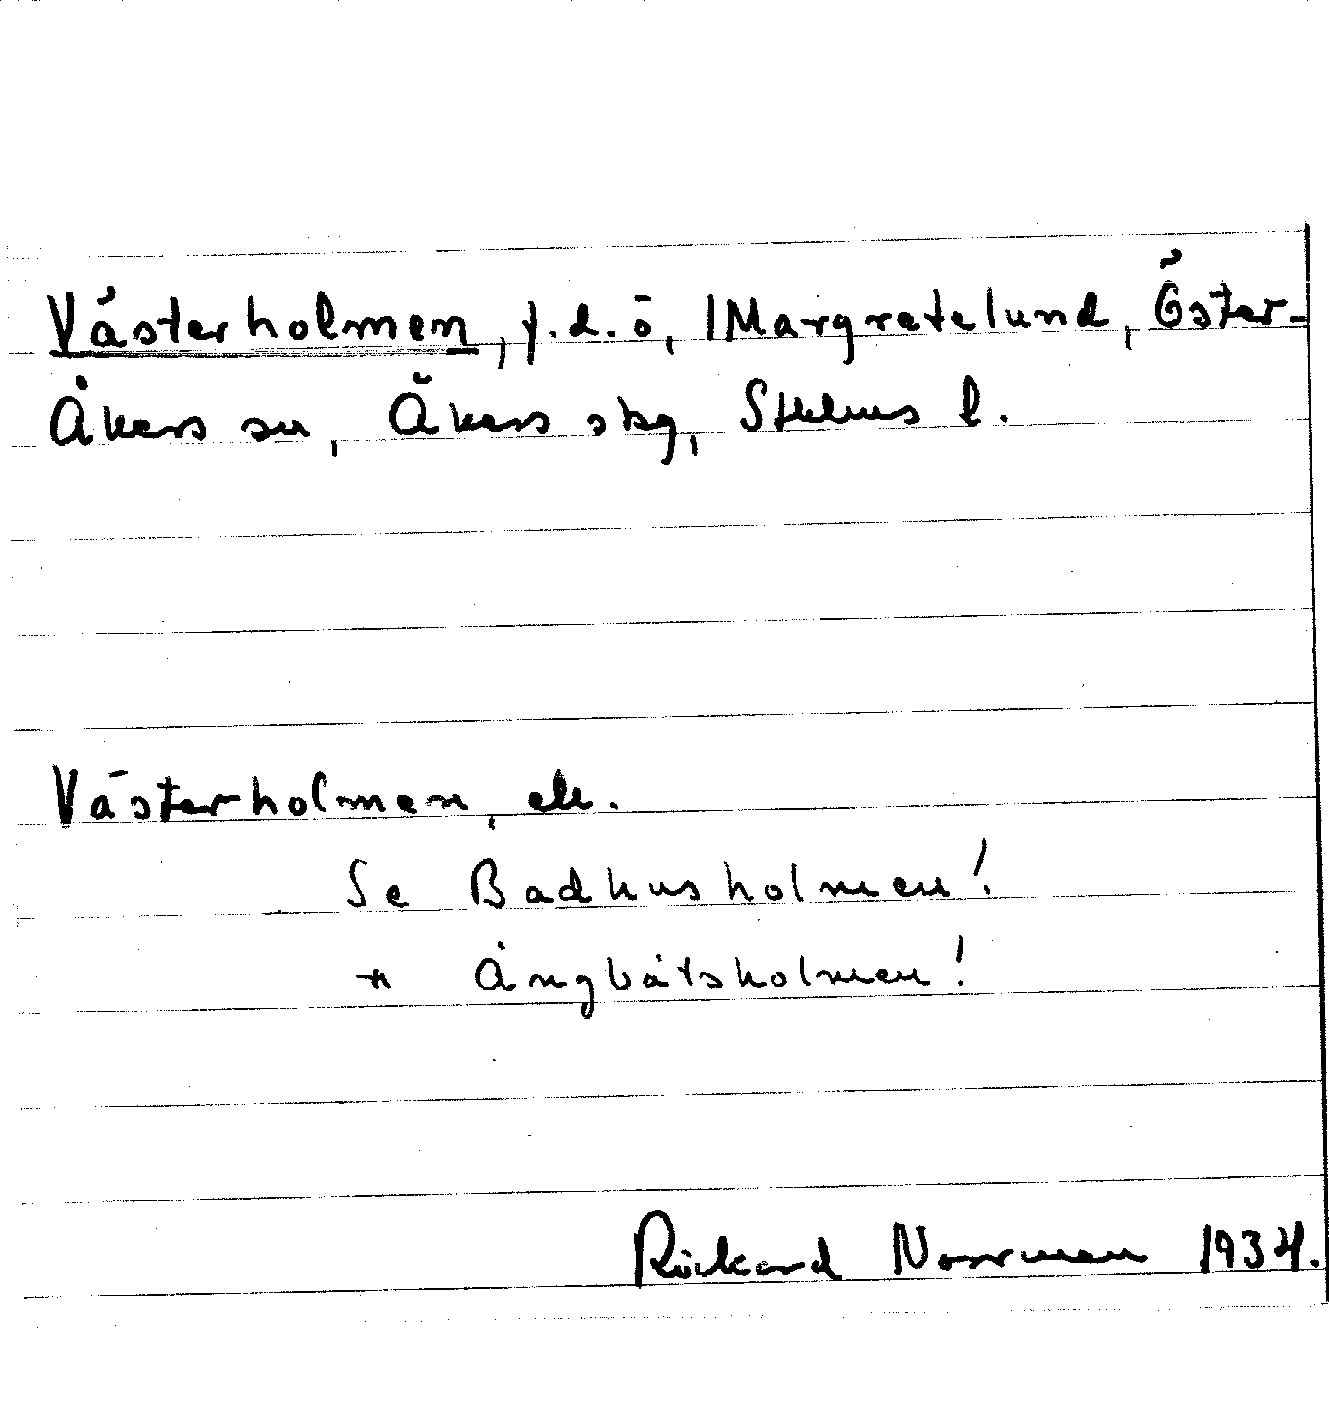 Västerholmen, f.d. ö, Margretelund, Öster-
Åkers sn, Åkers skg, Sthlms l.
Västerholmen, elr.
Se Badhusholmen!
" Ångbåtsholmen!
Rickard Norrman 1934.